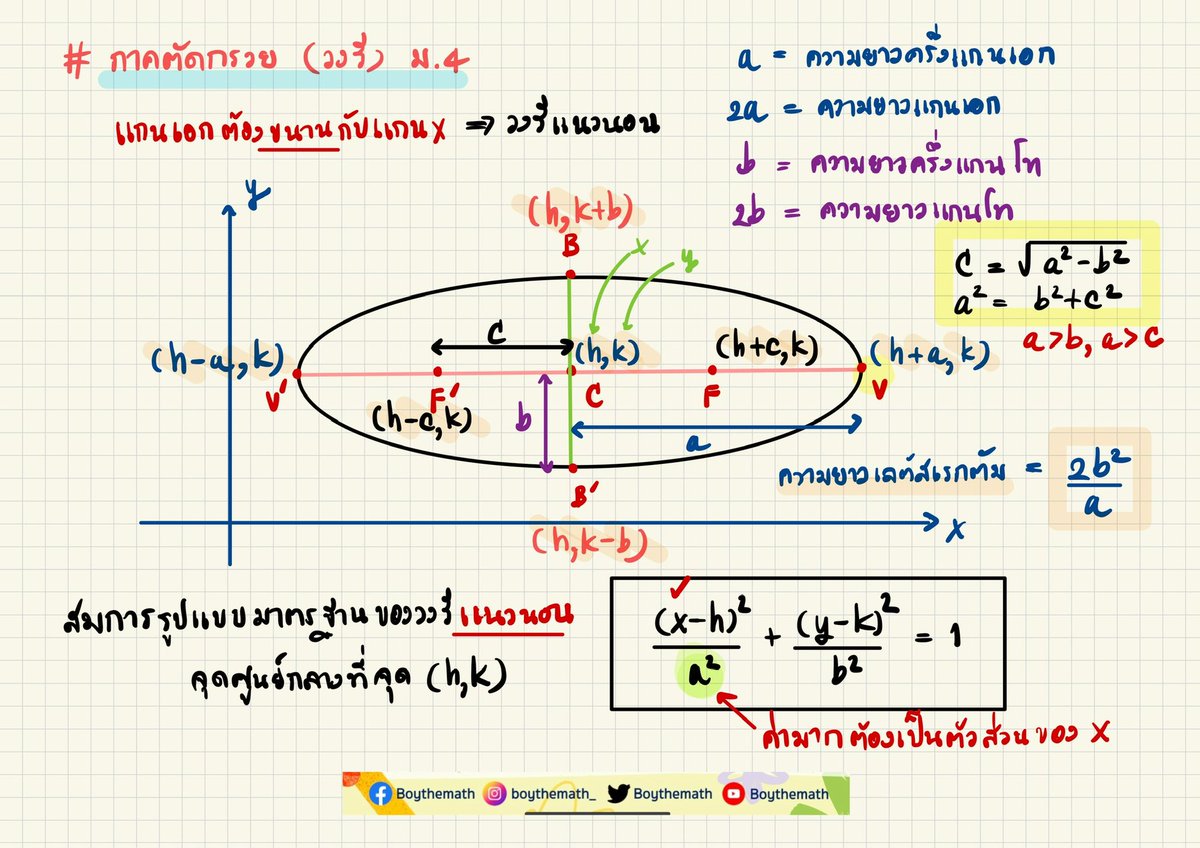 # ภาคตัดกรวย (วงรี) ม.4
แกนเอกต้องขนานกับแกน X ⇒ วงรีแนวนอน
a = ความยาวครึ่งแกนเอก
2a = ความยาวแกนเอก
b = ความยาวครึ่งแกนโท
2b = ความยาวแกนโท
c = √a²-b²
a² = b²+c²
a>b, a>c
y
(h,k+b)
B
x
y
c
(h-a,k)
(h,k)
(h+c,k)
(h+a,k)
V'
F'
C
F
V
(h-c,k)
b
a
B'
(h,k-b)
x
ความยาวเลตัสเรกตัม = 2b²/a
สมการรูปแบบมาตรฐานของวงรีแนวนอน
จุดศูนย์กลางที่จุด (h,k)
(x-h)²/a² + (y-k)²/b² = 1
ค่ามากต้องเป็นตัวส่วนของ X
Boythemath boythemath_ Boythemath Boythemath